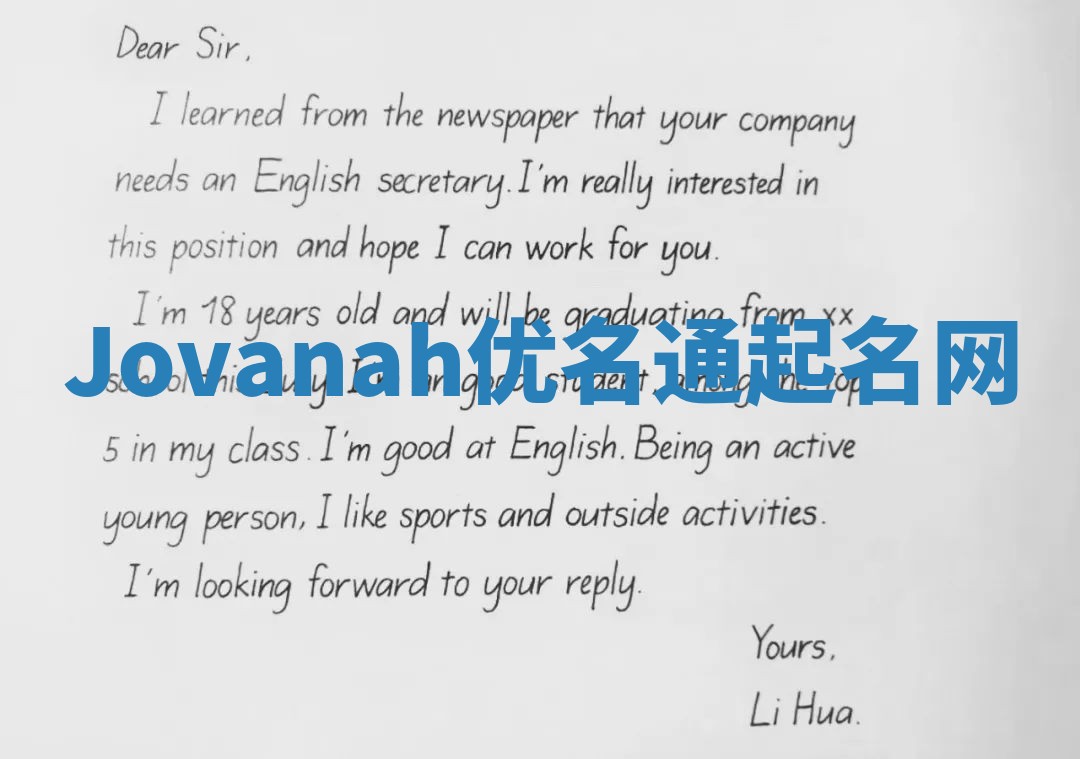 Dear Sir,
I learned from the newspaper that your company
needs an English secretary. I'm really interested in
this position and hope I can work for you.
I'm 18 years old and will be graduating from xx
Jovanah优名通起名网
school this July. I'm good student, among the top
5 in my class. I'm good at English. Being an active
young person, I like sports and outside activities.
I'm looking forward to your reply.
Yours,
Li Hua.